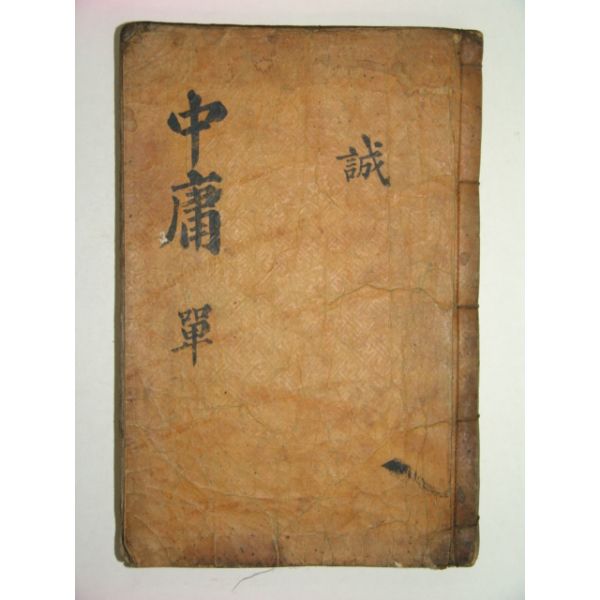 誠
中庸 單